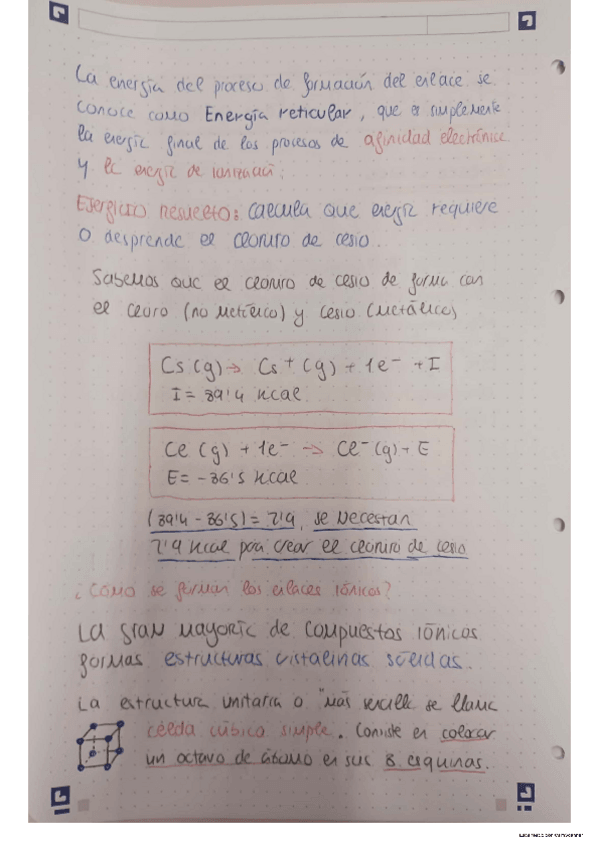 La energía del proceso de formación del enlace se
conoce como Energía reticular, que es simplemente
la energía final de los procesos de afinidad electrónica
y la energía de ionización.
Ejercicio resuelto: calcula que energía requiere
o desprende el cloruro de cesio.
Sabemos que el cloruro de cesio de forma con
el cloro (no metálico) y cesio (metálico)
Cs (g) → Cs+ (g) + 1e- + I
I = 89'4 Kcal
Cl (g) + 1e- → Cl- (g) + E
E = -86'5 Kcal
(89'4 - 86'5) = 2'9, se necesitan
2'9 Kcal para crear el cloruro de cesio
¿Cómo se forman los enlaces iónicos?
La gran mayoría de compuestos iónicos
formas estructuras cristalinas sólidas.
La estructura unitaria o "más sencilla se llama
celda cúbica simple. Consiste en colocar
un octavo de átomo en sus 8 esquinas.